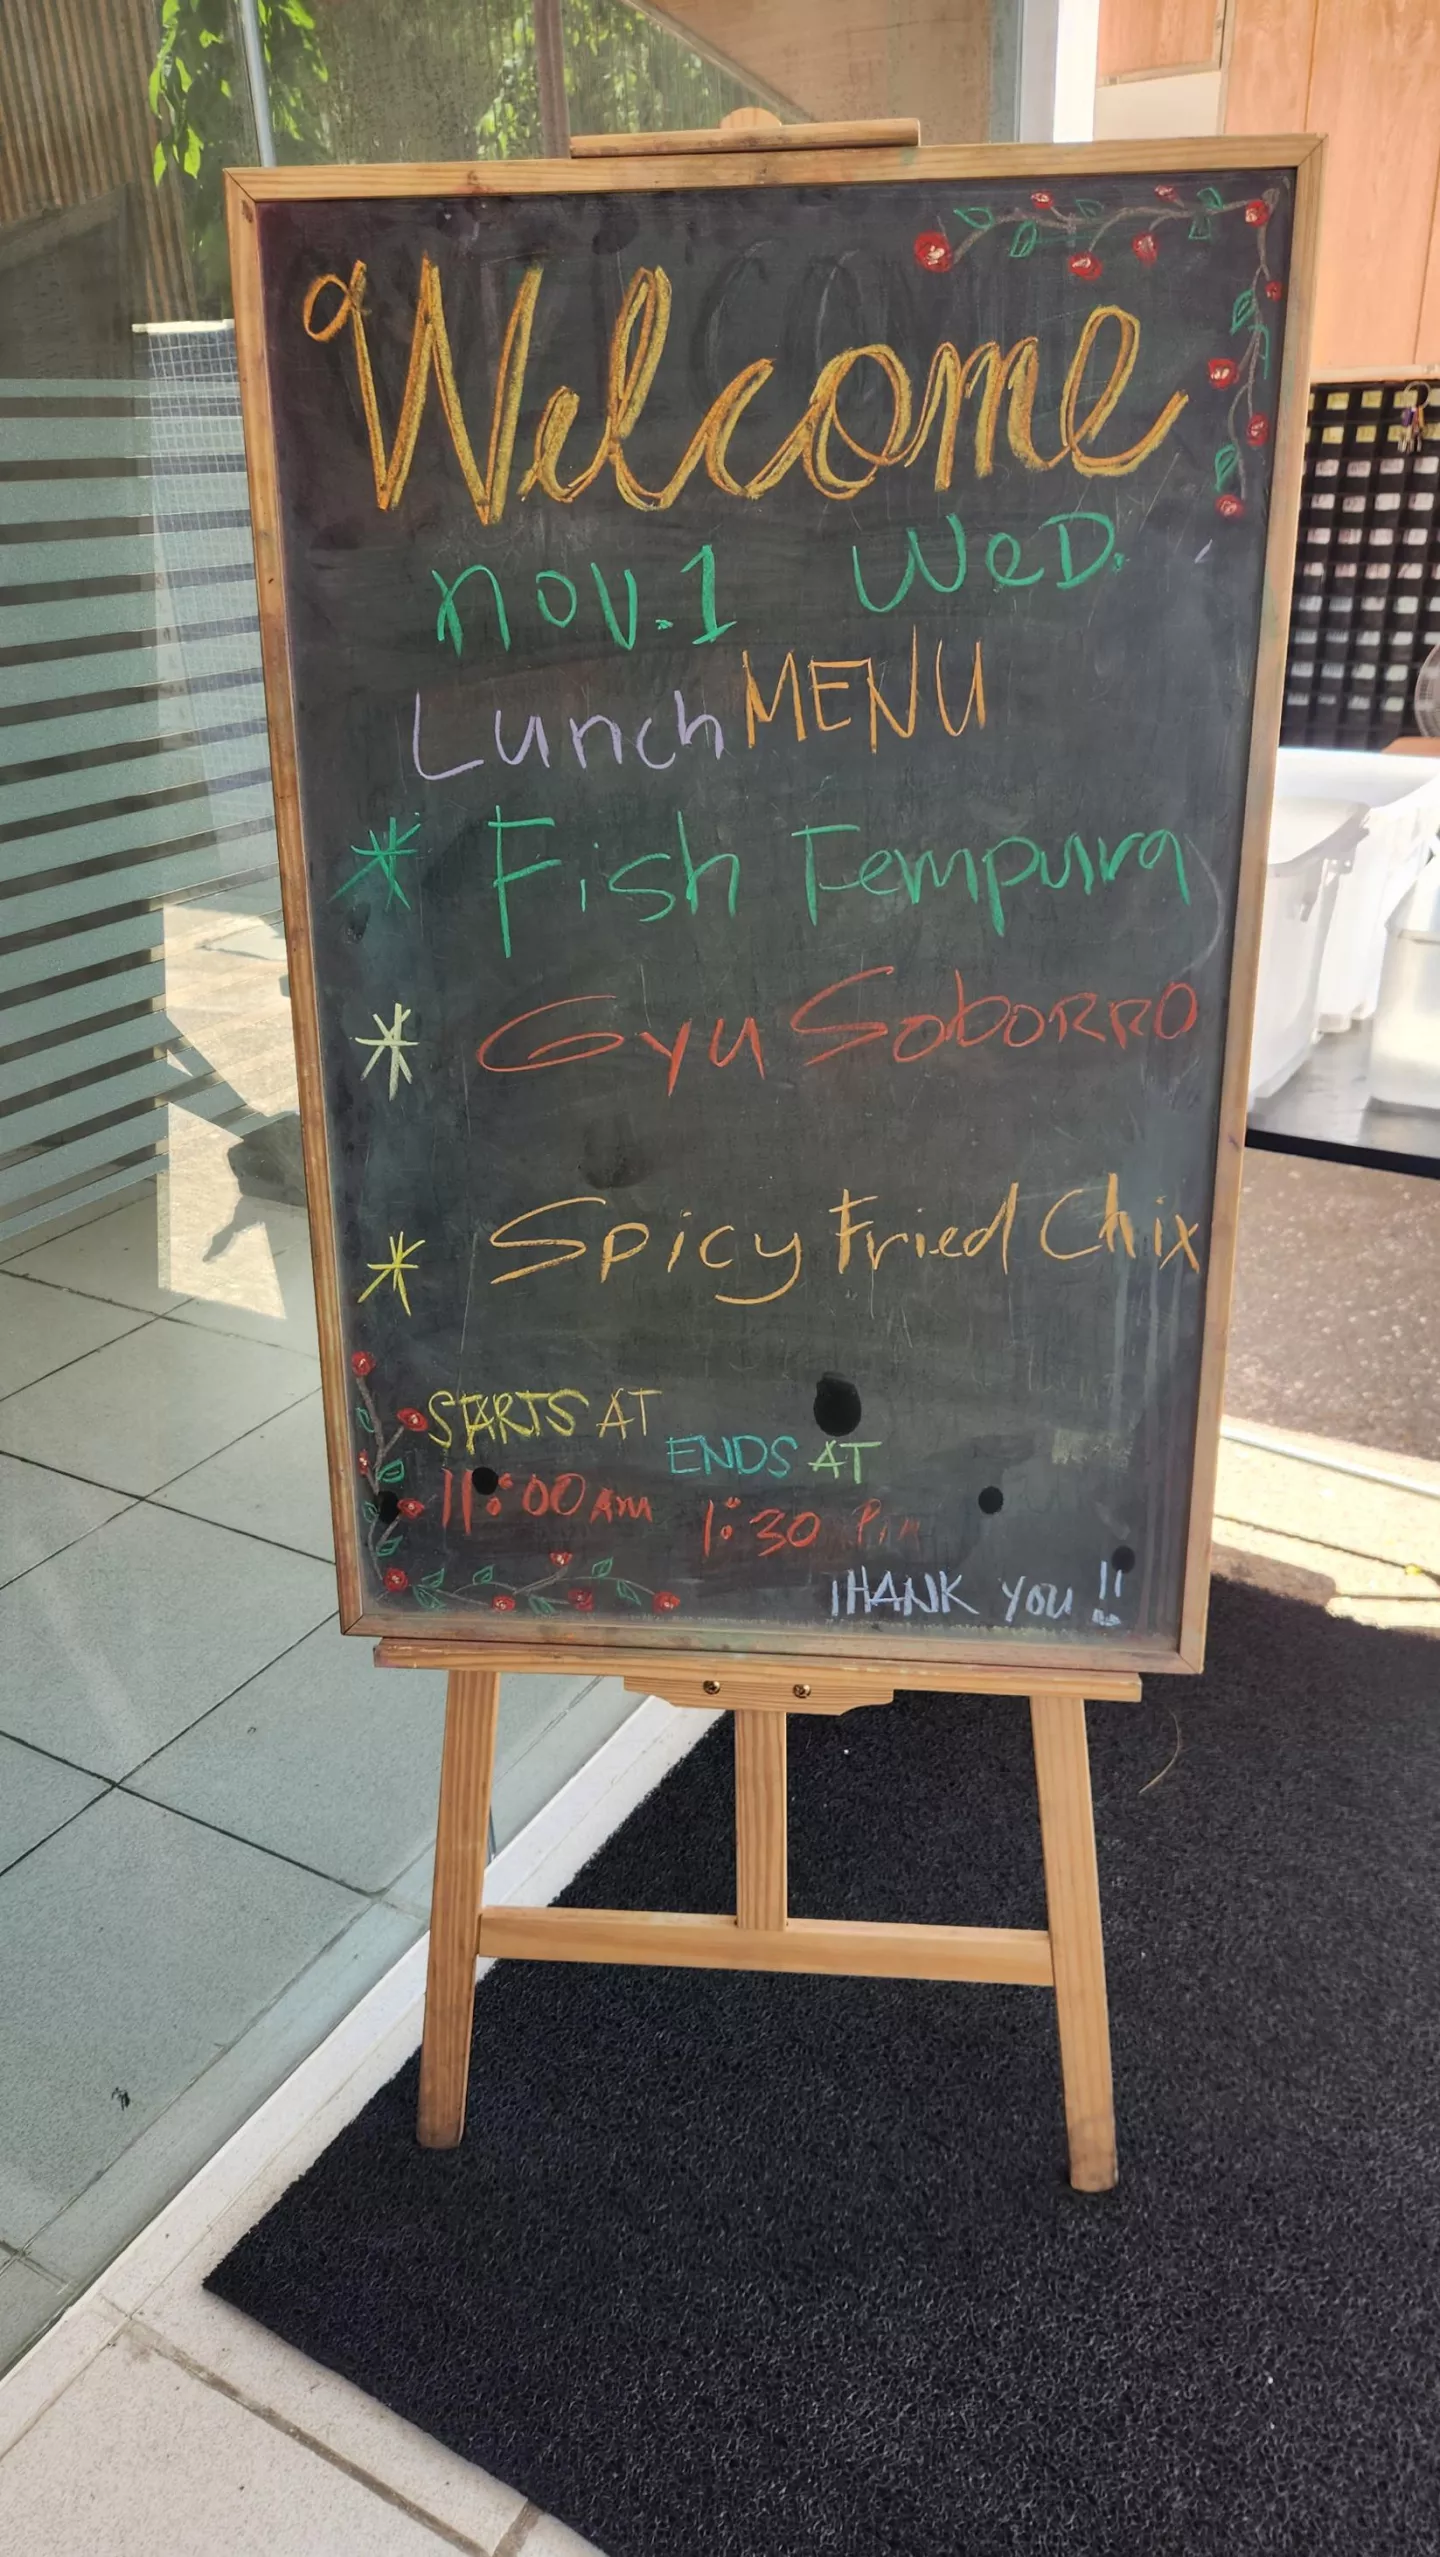 Welcome
nov.1 WeD.
Lunch MENU
* Fish Tempura
* Gyu SoboRRO
* Spicy Fried Chix
STARTS AT
ENDS AT
11:00 AM
1:30 PM
THANK YOU !!